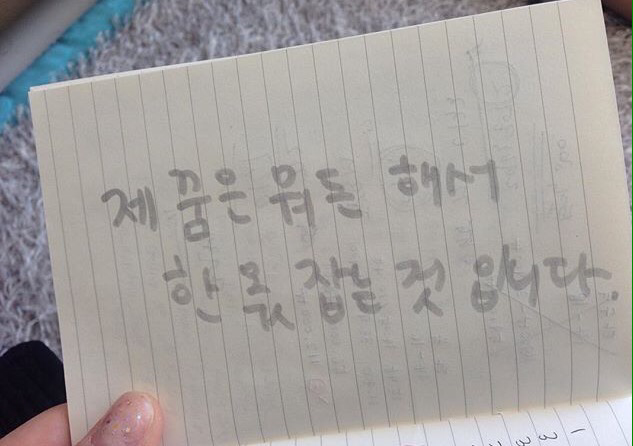 제 꿈은 뭐든 해서
한 몫 잡는 것 입니다.